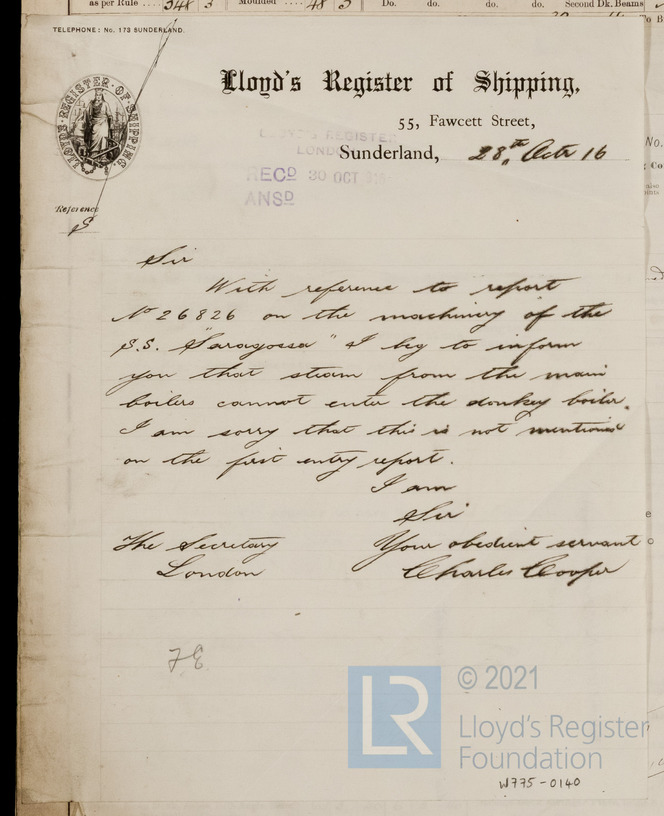 as per Rule 348 3 Moulded 48 3 Do. do. do. do. Second Dk. Beams
TELEPHONE: No. 173 SUNDERLAND.
LLOYD'S REGISTER OF SHIPPING.
Lloyd's Register of Shipping,
55, Fawcett Street,
LLOYD'S REGISTER
LONDON
Sunderland, 28th Octr 16
RECD 30 OCT
ANSD
Reference
Sir
With reference to report
No 26826 on the machinery of the
S.S. "Saragossa" I beg to inform
you that steam from the main
boilers cannot enter the donkey boiler.
I am sorry that this is not mentioned
on the first entry report.
I am
Sir
The Secretary Your obedient servant
London Charles Cooper
LR © 2021
Lloyd's Register
Foundation
W775-0140